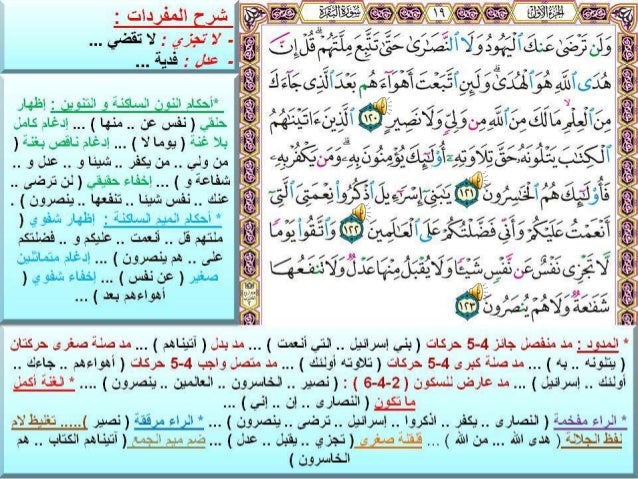 شرح المفردات :
- لا تجزي : لا تقضي ...
- عدل : فدية ...
*أحكام النون الساكنة و التنوين : إظهار
حلقي ( نفس عن .. منها ) ... إدغام كامل
بلا غنة ( يوما لا ) ... إدغام ناقص بغنة (
من ولي .. من يكفر .. شيئا و .. عدل و ..
شفاعة و ) ... إخفاء حقيقي ( لن ترضى ..
عنك .. نفس شيئا .. تنفعها .. ينصرون ) .
* أحكام الميم الساكنة : إظهار شفوي (
ملتهم قل .. أنعمت .. عليكم و .. فضلتكم
على .. هم ينصرون ) ... إدغام متماثلين
صغير ( عن نفس ) ... إخفاء شفوي (
أهواءهم بعد ) ...
الجزء الأول ١٩ سورة البقرة
وَلَن تَرْضَىٰ عَنكَ ٱلْيَهُودُ وَلَا ٱلنَّصَٰرَىٰ حَتَّىٰ تَتَّبِعَ مِلَّتَهُمْ قُلْ إِنَّ
هُدَى ٱللَّهِ هُوَ ٱلْهُدَىٰ وَلَئِنِ ٱتَّبَعْتَ أَهْوَآءَهُم بَعْدَ ٱلَّذِى جَآءَكَ
مِنَ ٱلْعِلْمِ مَا لَكَ مِنَ ٱللَّهِ مِن وَلِىٍّ وَلَا نَصِيرٍ ١٢٠ ٱلَّذِينَ ءَاتَيْنَٰهُمُ
ٱلْكِتَٰبَ يَتْلُونَهُۥ حَقَّ تِلَاوَتِهِۦٓ أُو۟لَٰٓئِكَ يُؤْمِنُونَ بِهِۦ وَمَن يَكْفُرْ بِهِۦ
فَأُو۟لَٰٓئِكَ هُمُ ٱلْخَٰسِرُونَ ١٢١ يَٰبَنِىٓ إِسْرَٰٓءِيلَ ٱذْكُرُوا۟ نِعْمَتِىَ ٱلَّتِىٓ
أَنْعَمْتُ عَلَيْكُمْ وَأَنِّى فَضَّلْتُكُمْ عَلَى ٱلْعَٰلَمِينَ ١٢٢ وَٱتَّقُوا۟ يَوْمًا
لَّا تَجْزِى نَفْسٌ عَن نَّفْسٍ شَيْـًٔا وَلَا يُقْبَلُ مِنْهَا عَدْلٌ وَلَا تَنفَعُهَا
شَفَٰعَةٌ وَلَا هُمْ يُنصَرُونَ ١٢٣
* المدود : مد منفصل جائز 4-5 حركات ( بني إسرائيل .. التي أنعمت ) ... مد بدل ( آتيناهم ) ... مد صلة صغرى حركتان
( يتلونه .. به ) ... مد صلة كبرى 4-5 حركات ( تلاوته أولئك ) ... مد متصل واجب 4-5 حركات ( أهواءهم .. جاءك ..
أولئك .. إسرائيل ) ... مد عارض للسكون ( 2-4-6 ) : ( نصير .. الخاسرون .. العالمين .. ينصرون ) .... * الغنة أكمل
ما تكون ( النصارى .. إن .. إني ) ...
* الراء مفخمة ( النصارى .. يكفر .. اذكروا .. إسرائيل .. ترضى .. ينصرون ) ... * الراء مرققة ( نصير )..... تغليظ لام
لفظ الجلالة ( هدى الله ... من الله ) ... قلقلة صغرى ( تجزي .. يقبل .. عدل ) ... ضم ميم الجمع ( آتيناهم الكتاب .. هم
الخاسرون )